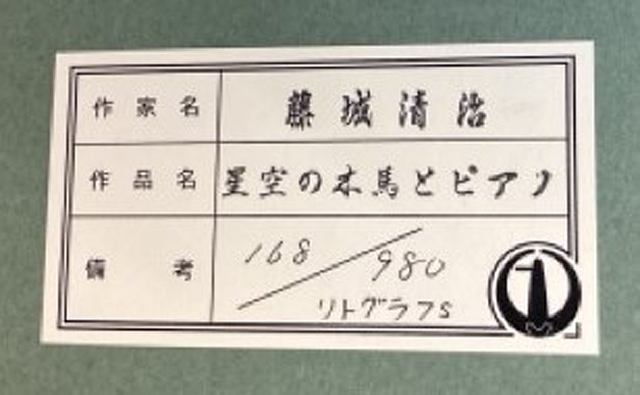 作家名 藤城清治
作品名 星空の木馬とピアノ
備考 168/980
リトグラフS